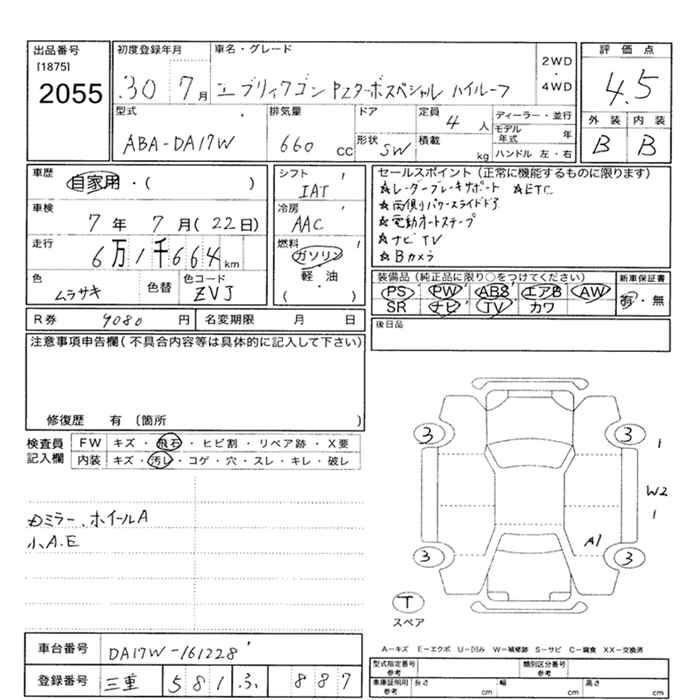 出品番号
[1875]
2055
初度登録年月
30 7月
車名・グレード
エブリィワゴン PZターボスペシャル ハイルーフ
2WD
・
4WD
評価点
4.5
外装 内装
B B
型式
ABA-DA17W
排気量
660 CC
ドア
形状 SW
定員 4 人
積載 kg
ディーラー・並行
モデル年式 年
ハンドル 左・右
車歴
自家用・( )
車検
7年 7月(22日)
走行
6万1千664km
色
ムラサキ
色替
色コード
ZVJ
シフト
IAT
冷房
AAC
燃料
ガソリン
・
軽・油
( )
セールスポイント(正常に機能するものに限ります)
☆レーダーブレーキサポート ☆ETC
☆両側パワースライドドア
☆電動オートステップ
☆ナビTV
☆Bカメラ
装備品(純正品に限り○をつけてください)
PS PW ABS エアB AW
SR ナビ TV カワ
新車保証書
有・無
後日品
R券 9080 円 名変期限 月 日
注意事項申告欄(不具合内容等は具体的に記入して下さい)
修復歴 有 〔箇所 〕
検査員記入欄
FW キズ・飛石・ヒビ割・リペア跡・X要
内装 キズ・汚レ・コゲ・穴・スレ・キレ・破レ
ミラー、ホイールA
小A.E
3 3
1
W2
1
A1
3 3
T
スペア
A-キズ E-エクボ U-凹み W-補修跡 S-サビ C-腐食 XX-交換済
車台番号 DA17W-161228
登録番号 三重 581 ふ 887
型式指定番号
参考
類別区分番号
参考
車庫証明用
参考
長さ cm 幅 cm 高さ cm